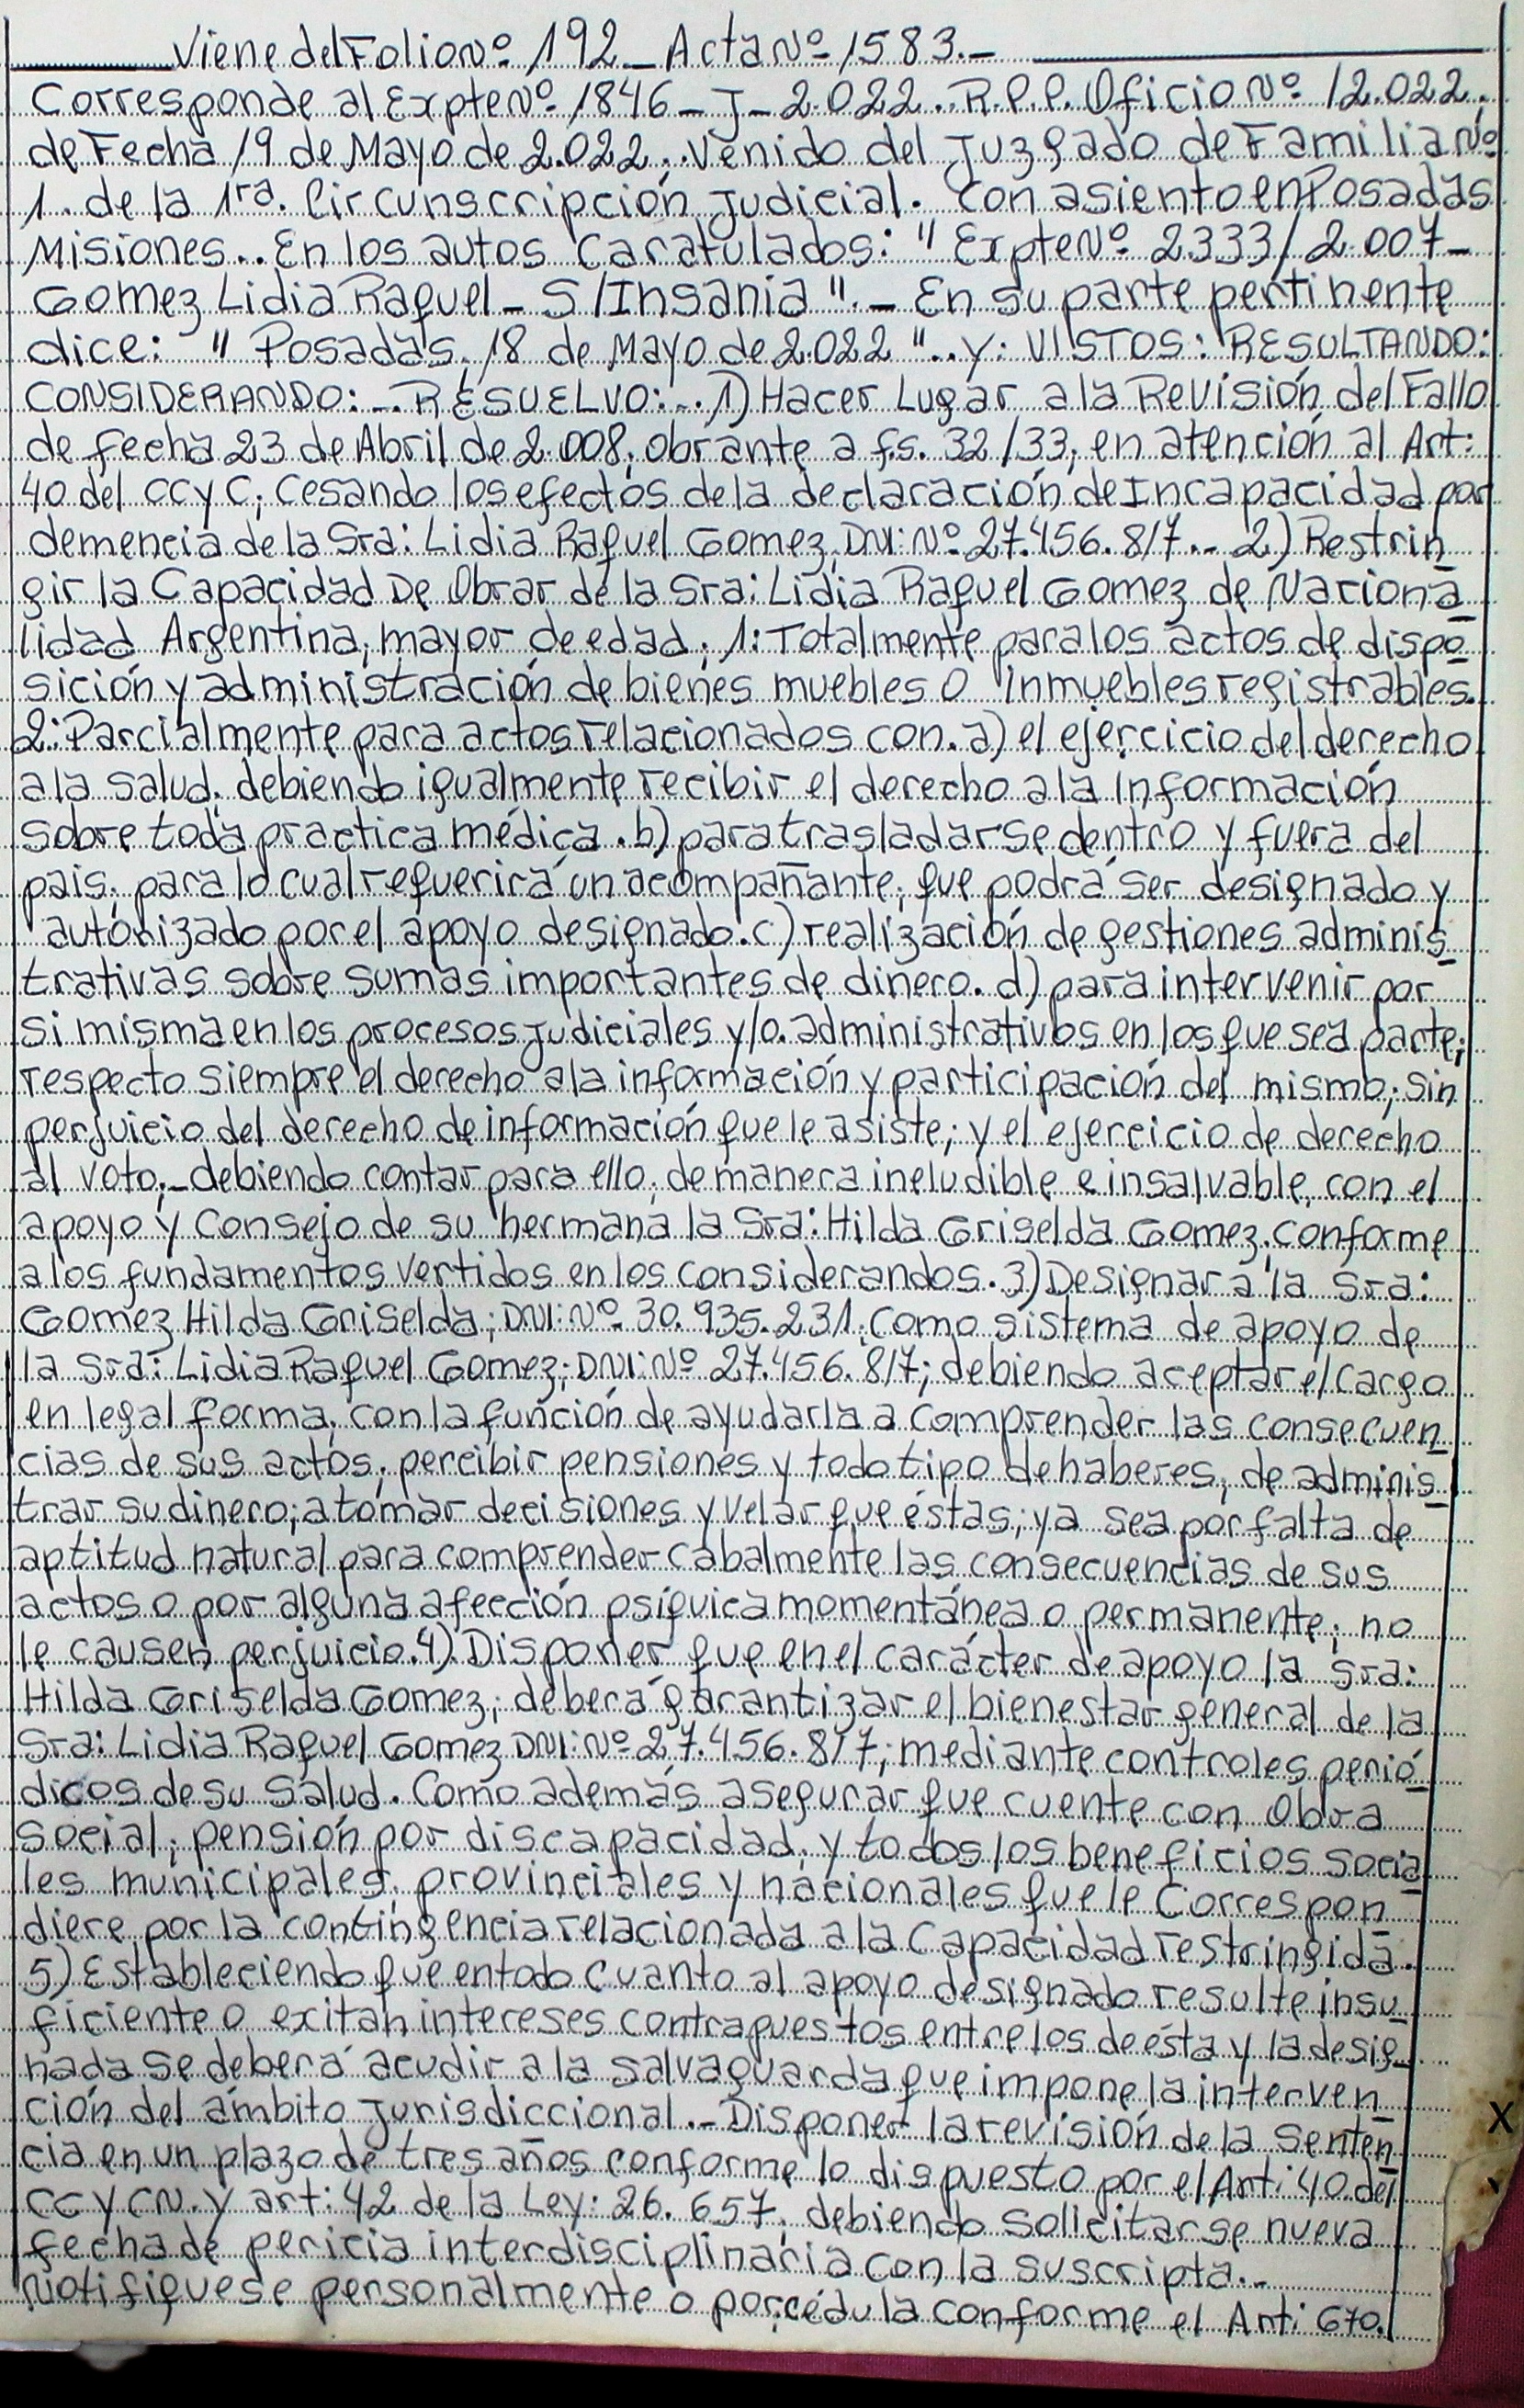 Viene del Folio Nº 192 _ Acta Nº 1583.-
Corresponde al Expte Nº 1846 - J - 2.022.. R.P.P. Oficio Nº 12.022.
de Fecha 19 de Mayo de 2.022; venido del Juzgado de Familia Nº
1. de la 1ra. Circunscripción Judicial. Con asiento en Posadas
Misiones.. En los autos Caratulados: " Expte Nº 2333/2.007-
Gomez Lidia Raquel - S/Insania ". - En su parte pertinente
dice: " Posadas, 18 de Mayo de 2.022 ".. Y: VISTOS: RESULTANDO:
CONSIDERANDO: -.. RESUELVO: -.. 1) Hacer Lugar a la Revisión del Fallo
de fecha 23 de Abril de 2.008; obrante a fs. 32/33; en atención al Art:
40 del CCyC; Cesando los efectos de la declaración de Incapacidad por
demencia de la Sra: Lidia Raquel Gomez, DNI: Nº 27.456.817.- 2) Restrin_
gir la Capacidad De Obrar de la Sra: Lidia Raquel Gomez de Naciona_
lidad Argentina; mayor de edad; 1: Totalmente para los actos de dispo_
sición y administración de bienes muebles o inmuebles registrables.
2: Parcialmente para actos relacionados con. a) el ejercicio del derecho
a la salud; debiendo igualmente recibir el derecho a la Información
sobre toda practica médica. b) para trasladarse dentro y fuera del
pais; para lo cual requerirá un acompañante; que podrá ser designado y
autorizado por el apoyo designado. c) realización de gestiones adminis_
trativas sobre sumas importantes de dinero. d) para intervenir por
si misma en los procesos judiciales y/o. administrativos en los que sea parte;
respecto siempre el derecho a la información y participación del mismo; sin
perjuicio del derecho de información que le asiste; y el ejercicio de derecho
al voto;- debiendo contar para ello, de manera ineludible e insalvable, con el
apoyo y Consejo de su hermana la Sra: Hilda Griselda Gomez. Conforme
a los fundamentos vertidos en los considerandos. 3) Designar a la Sra:
Gomez Hilda Griselda; DNI: Nº 30.935.231. Como sistema de apoyo de
la Sra: Lidia Raquel Gomez; DNI: Nº 27.456.817; debiendo aceptar el Cargo
en legal forma, con la función de ayudarla a comprender las consecuen_
cias de sus actos; percibir pensiones y todo tipo de haberes; de adminis_
trar su dinero; a tomar decisiones y velar que éstas; ya sea por falta de
aptitud natural para comprender cabalmente las consecuencias de sus
actos o por alguna afección psíquica momentánea o permanente; no
le causen perjuicio. 4) Disponer que en el carácter de apoyo la Sra:
Hilda Griselda Gomez; deberá garantizar el bienestar general de la
Sra: Lidia Raquel Gomez DNI: Nº 27.456.817; mediante controles perió_
dicos de su Salud. Como además asegurar que cuente con Obra
Social; pensión por discapacidad; y todos los beneficios socia_
les municipales, provinciales y nacionales que le Correspon_
diere por la contingencia relacionada a la Capacidad restringida.
5) Estableciendo que en todo cuanto al apoyo designado resulte insu_
ficiente o exitan intereses contrapuestos entre los de ésta y la desig_
nada se deberá acudir a la salvaguarda que impone la interven_
ción del ámbito Jurisdiccional.- Disponer la revisión de la Senten_
cia en un plazo de tres años conforme lo dispuesto por el Art: 40 del
CCYCN. Y art: 42 de la Ley: 26.657; debiendo solicitarse nueva
fecha de pericia interdisciplinaria con la suscripta.-
Notifiquese personalmente o por cédula conforme el Art: 670.
X